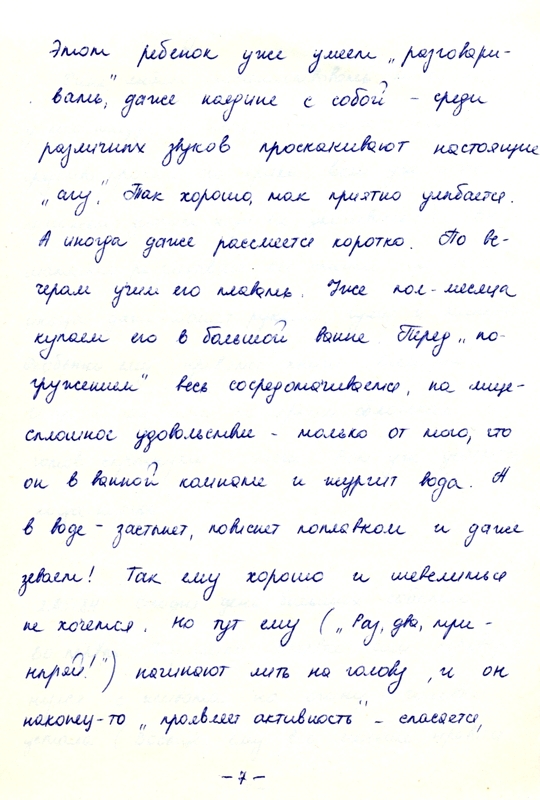 Этот ребенок уже умеет „разговари-
вать", даже наедине с собой – среди
различных звуков проскакивают настоящие
„агу". Так хорошо, так приятно улыбается.
А иногда даже рассмеется коротко. По ве-
черам учим его плавать. Уже пол-месяца
купаем его в большой ванне. Перед „по-
гружением" весь сосредотачивается, на лице –
сплошное удовольствие – только от того, что
он в ванной комнате и журчит вода. А
в воде – застынет, повиснет поплавком и даже
зевает! Так ему хорошо и шевелиться
не хочется. Но тут ему („Раз, два, три –
ныряй!") начинают лить на голову, и он
наконец-то „проявляет активность" – спасается,
– 7 –